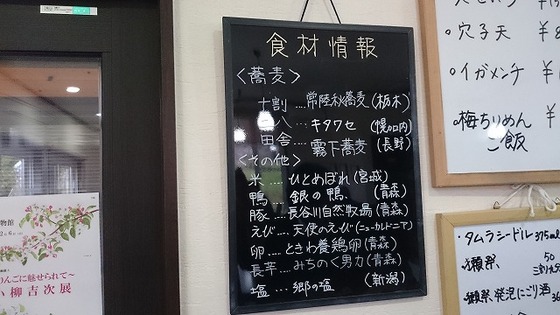 食材情報
<蕎麦>
十割....常陸秋蕎麦(栃木)
二八...キタワセ(幌加内)
田舎...霧下蕎麦(長野)
<その他>
米....ひとめぼれ(宮城)
鴨....銀の鴨(青森)
豚...長谷川自然牧場(青森)
えび...天使のえび(ニューカレドニア)
卵...ときわ養鶏卵(青森)
長芋...みちのく男力(青森)
塩...郷の塩(新潟)
穴子天 ¥
・イガメンチ ¥
・梅ちりめん ¥
ご飯
・タムラシードル 375ml
・獺祭 50
・獺祭発泡にごり酒
物館
りんごに魅せられて〜
小柳吉次展